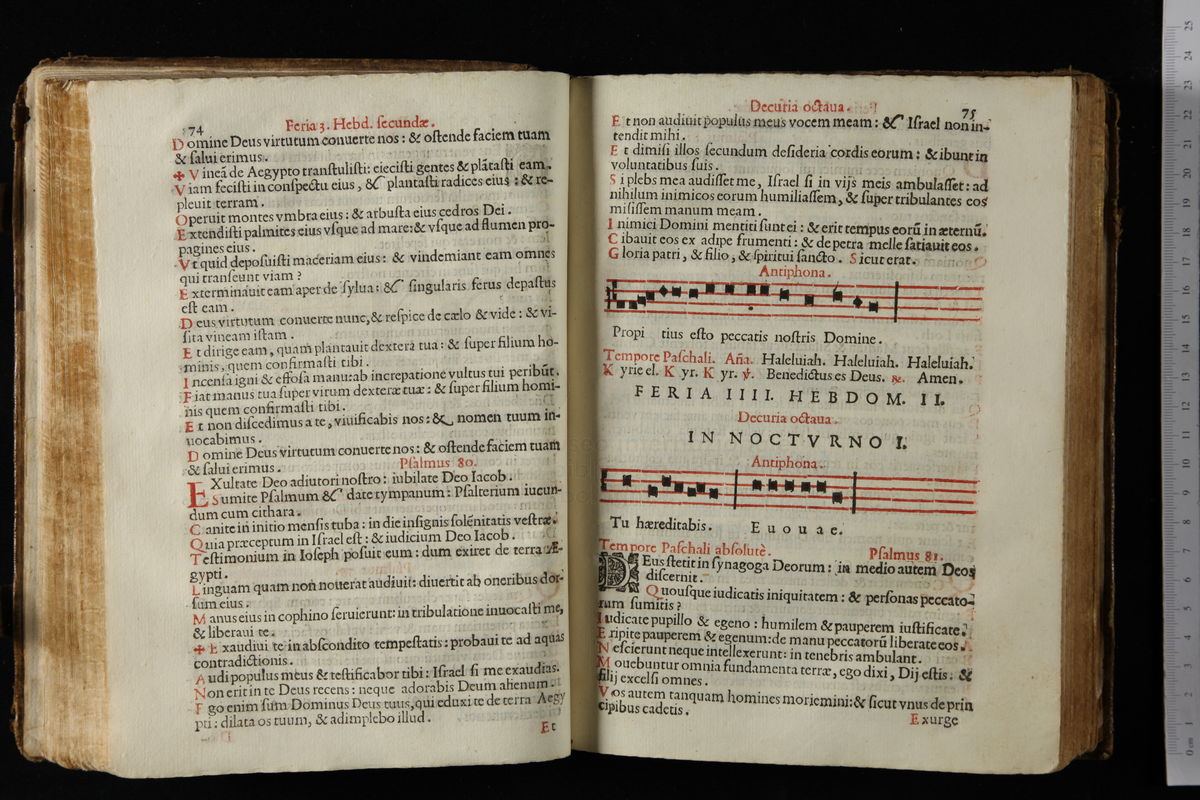 74
Feria 3. Hebd. ſecundæ.
Domine Deus virtutum conuerte nos: & oſtende faciem tuam
& ſalui erimus.
✠ Vineã de Aegypto tranſtuliſti: eieciſti gentes & plãtaſti eam.
Viam feciſti in conſpectu eius, & plantaſti radices eius: & re-
pleuit terram.
Operuit montes vmbra eius: & arbuſta eius cedros Dei.
Extendiſti palmites eius vſque ad mare: & vſque ad flumen pro-
pagines eius.
Vt quid depoſuiſti maceriam eius: & vindemiant eam omnes
qui tranſeunt viam?
Exterminauit eam aper de ſylua: & ſingularis ferus depaſtus
eſt eam.
Deus virtutum conuerte nunc, & reſpice de cælo & vide: & vi-
ſita vineam iſtam.
Et dirige eam, quam plantauit dextera tua: & ſuper filium ho-
minis, quem confirmaſti tibi.
Incenſa igni & effoſa manu: ab increpatione vultus tui peribũt.
Fiat manus tua ſuper virum dexteræ tuæ: & ſuper filium homi-
nis quem confirmaſti tibi.
Et non diſcedimus a te, viuificabis nos: & nomen tuum in-
uocabimus.
Domine Deus virtutum conuerte nos: & oſtende faciem tuam
& ſalui erimus.
Pſalmus 80.
EXultate Deo adiutori noſtro: iubilate Deo Iacob.
Sumite Pſalmum & date tympanum: Pſalterium iucun-
dum cum cithara.
Canite in initio menſis tuba: in die inſignis ſolẽnitatis veſtræ.
Quia præceptum in Iſrael eſt: & iudicium Deo Iacob.
Teſtimonium in Ioſeph poſuit eum: dum exiret de terra Æ-
gypti.
Linguam quam non nouerat audiuit: diuertit ab oneribus dor-
ſum eius.
Manus eius in cophino ſeruierunt: in tribulatione inuocaſti me,
& liberaui te.
✠ Exaudiui te in abſcondito tempeſtatis: probaui te ad aquas
contradictionis.
Audi populus meus & teſtificabor tibi: Iſrael ſi me exaudias.
Non erit in te Deus recens: neque adorabis Deum alienum.
Ego enim ſum Dominus Deus tuus, qui eduxi te de terra Aegy
pti: dilata os tuum, & adimplebo illud.
Et
Decuria octaua.
75
Et non audiuit populus meus vocem meam: & Iſrael non in-
tendit mihi.
Et dimiſi illos ſecundum deſideria cordis eorum: & ibunt in
voluntatibus ſuis.
Si plebs mea audiſſet me, Iſrael ſi in vijs meis ambulaſſet: ad
nihilum inimicos eorum humiliaſſem, & ſuper tribulantes eos
miſiſſem manum meam.
Inimici Domini mentiti ſunt ei: & erit tempus eorũ in æternũ.
Cibauit eos ex adipe frumenti: & de petra melle ſatiauit eos.
Gloria patri, & filio, & ſpiritui ſancto. Sicut erat.
Antiphona.
Propi tius eſto peccatis noſtris Domine.
Tempore Paſchali. Aña. Haleluiah. Haleluiah. Haleluiah.
Kyrie el. Kyr. Kyr. ℣. Benedictus es Deus. ℟. Amen.
FERIA IIII. HEBDOM. II.
Decuria octaua.
IN NOCTVRNO I.
Antiphona.
Tu hæreditabis. Euouae.
Tempore Paſchali abſolutè. Pſalmus 81.
DEus ſtetit in ſynagoga Deorum: in medio autem Deos
diſcernit.
Quouſque iudicatis iniquitatem: & perſonas peccato-
rum ſumitis?
Iudicate pupillo & egeno: humilem & pauperem iuſtificate.
Eripite pauperem & egenum: de manu peccatorũ liberate eos.
Neſcierunt neque intellexerunt: in tenebris ambulant.
Mouebuntur omnia fundamenta terræ, ego dixi, Dij eſtis: &
filij excelſi omnes.
Vos autem tanquam homines moriemini: & ſicut vnus de prin
cipibus cadetis.
Exurge